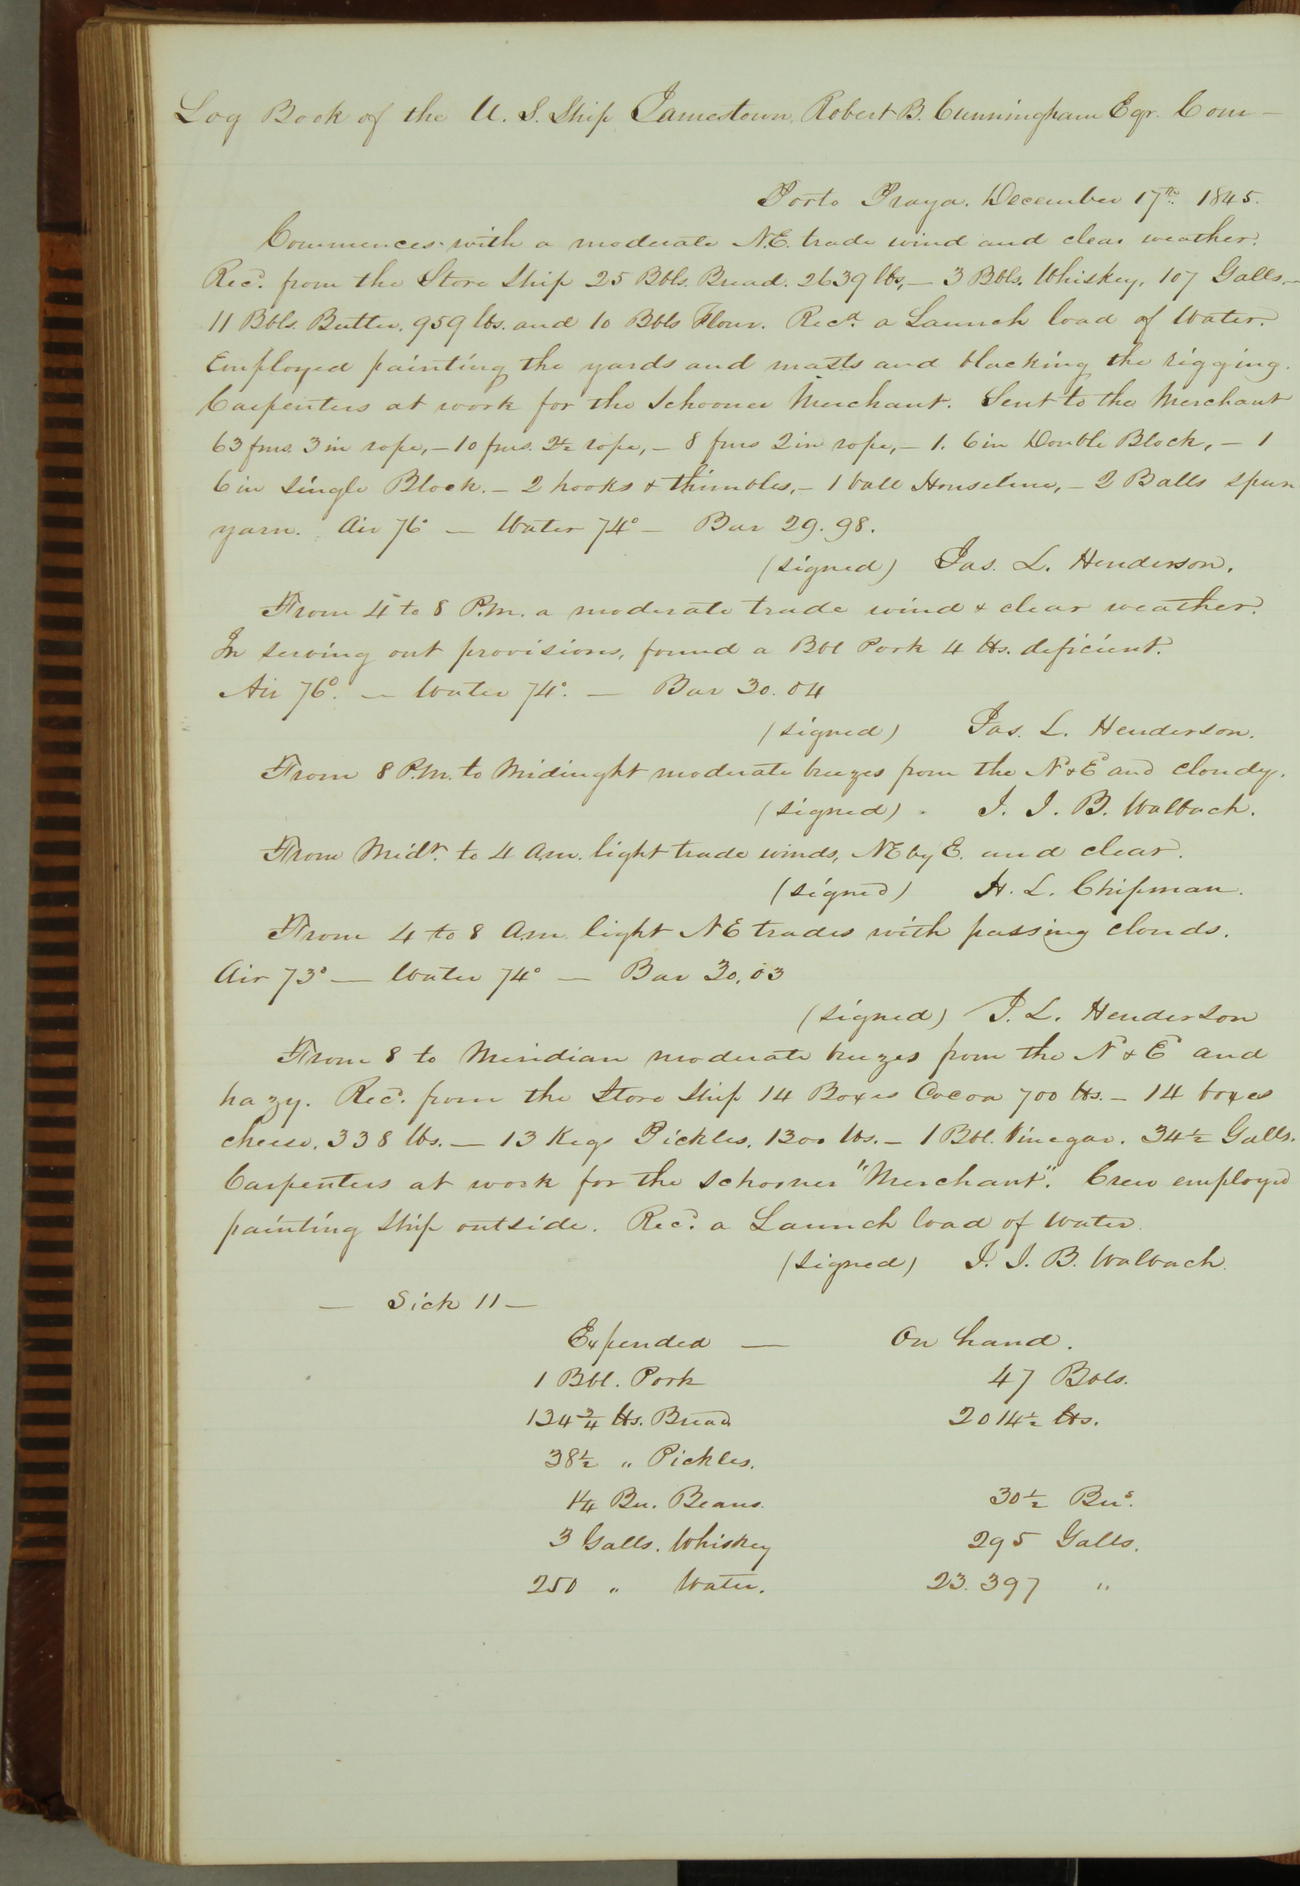 Log Book of the U. S. Ship Jamestown, Robert B. Cunningham Eqr. Com—
Porto Praya. December 17th. 1845.
Commences with a moderate N.E. trade wind and clear weather.
Recd. from the Store Ship 25 Bbls. Bread. 2639 lbs,— 3 Bbls. Whiskey, 107 Galls.—
11 Bbls. Butter. 959 lbs. and 10 Bbls Flour. Recd. a Launch load of Water.
Employed painting the yards and masts and blacking the rigging.
Carpenters at work for the Schooner Merchant. Sent to the Merchant
63 fms. 3 in rope,— 10 fms. 2½ rope,— 8 fms 2 in rope,— 1. 6 in Double Block,— 1
6 in Single Block.— 2 hooks & thimbles,— 1 ball Houseline,— 2 Balls spun
yarn. Air 76° — Water 74° — Bar 29.98.
(signed) Jas. L. Henderson.
From 4 to 8 P.M. a moderate trade wind & clear weather.
In serving out provisions, found a Bbl Pork 4 lbs. deficient.
Air 76°. — Water 74°. — Bar 30.04
(signed) Jas. L. Henderson.
From 8 P.M. to Midinght moderate breezes from the N & E and cloudy.
(signed) J. J. B. Walbach.
From Midt. to 4 A.m. light trade winds, NE by E. and clear.
(signed) H. L. Chipman.
From 4 to 8 A.m. light NE trades with passing clouds.
Air 73° — Water 74° — Bar 30.03
(signed) J. L. Henderson
From 8 to Meridian moderate breezes from the N & E and
hazy. Recd. from the Store Ship 14 Boxes Cocoa 700 lbs.— 14 boxes
cheese. 338 lbs.— 13 Kegs Pickles. 1300 lbs.— 1 Bbl. Vinegar. 34½ Galls.
Carpenters at work for the schooner "Merchant". Crew employed
painting ship outside. Recd. a Launch load of Water.
(signed) J. J. B. Walbach.
— Sick 11 —
Expended — On hand.
1 Bbl. Pork 47 Bbls.
134¾ lbs. Bread 2014½ lbs.
38½ " Pickles.
1¼ Bu. Beans. 30½ Bus.
3 Galls. Whiskey 295 Galls.
250 " Water. 23.397 "